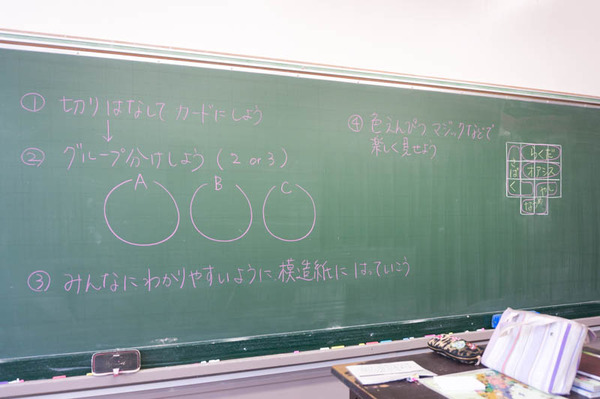 ① 切りはなして カードにしよう
② グループ分けしよう (2 or 3)
A B C
③ みんなにわかりやすいように、模造紙に はっていこう
④ 色えんぴつ マジックなどで
楽しく見せよう